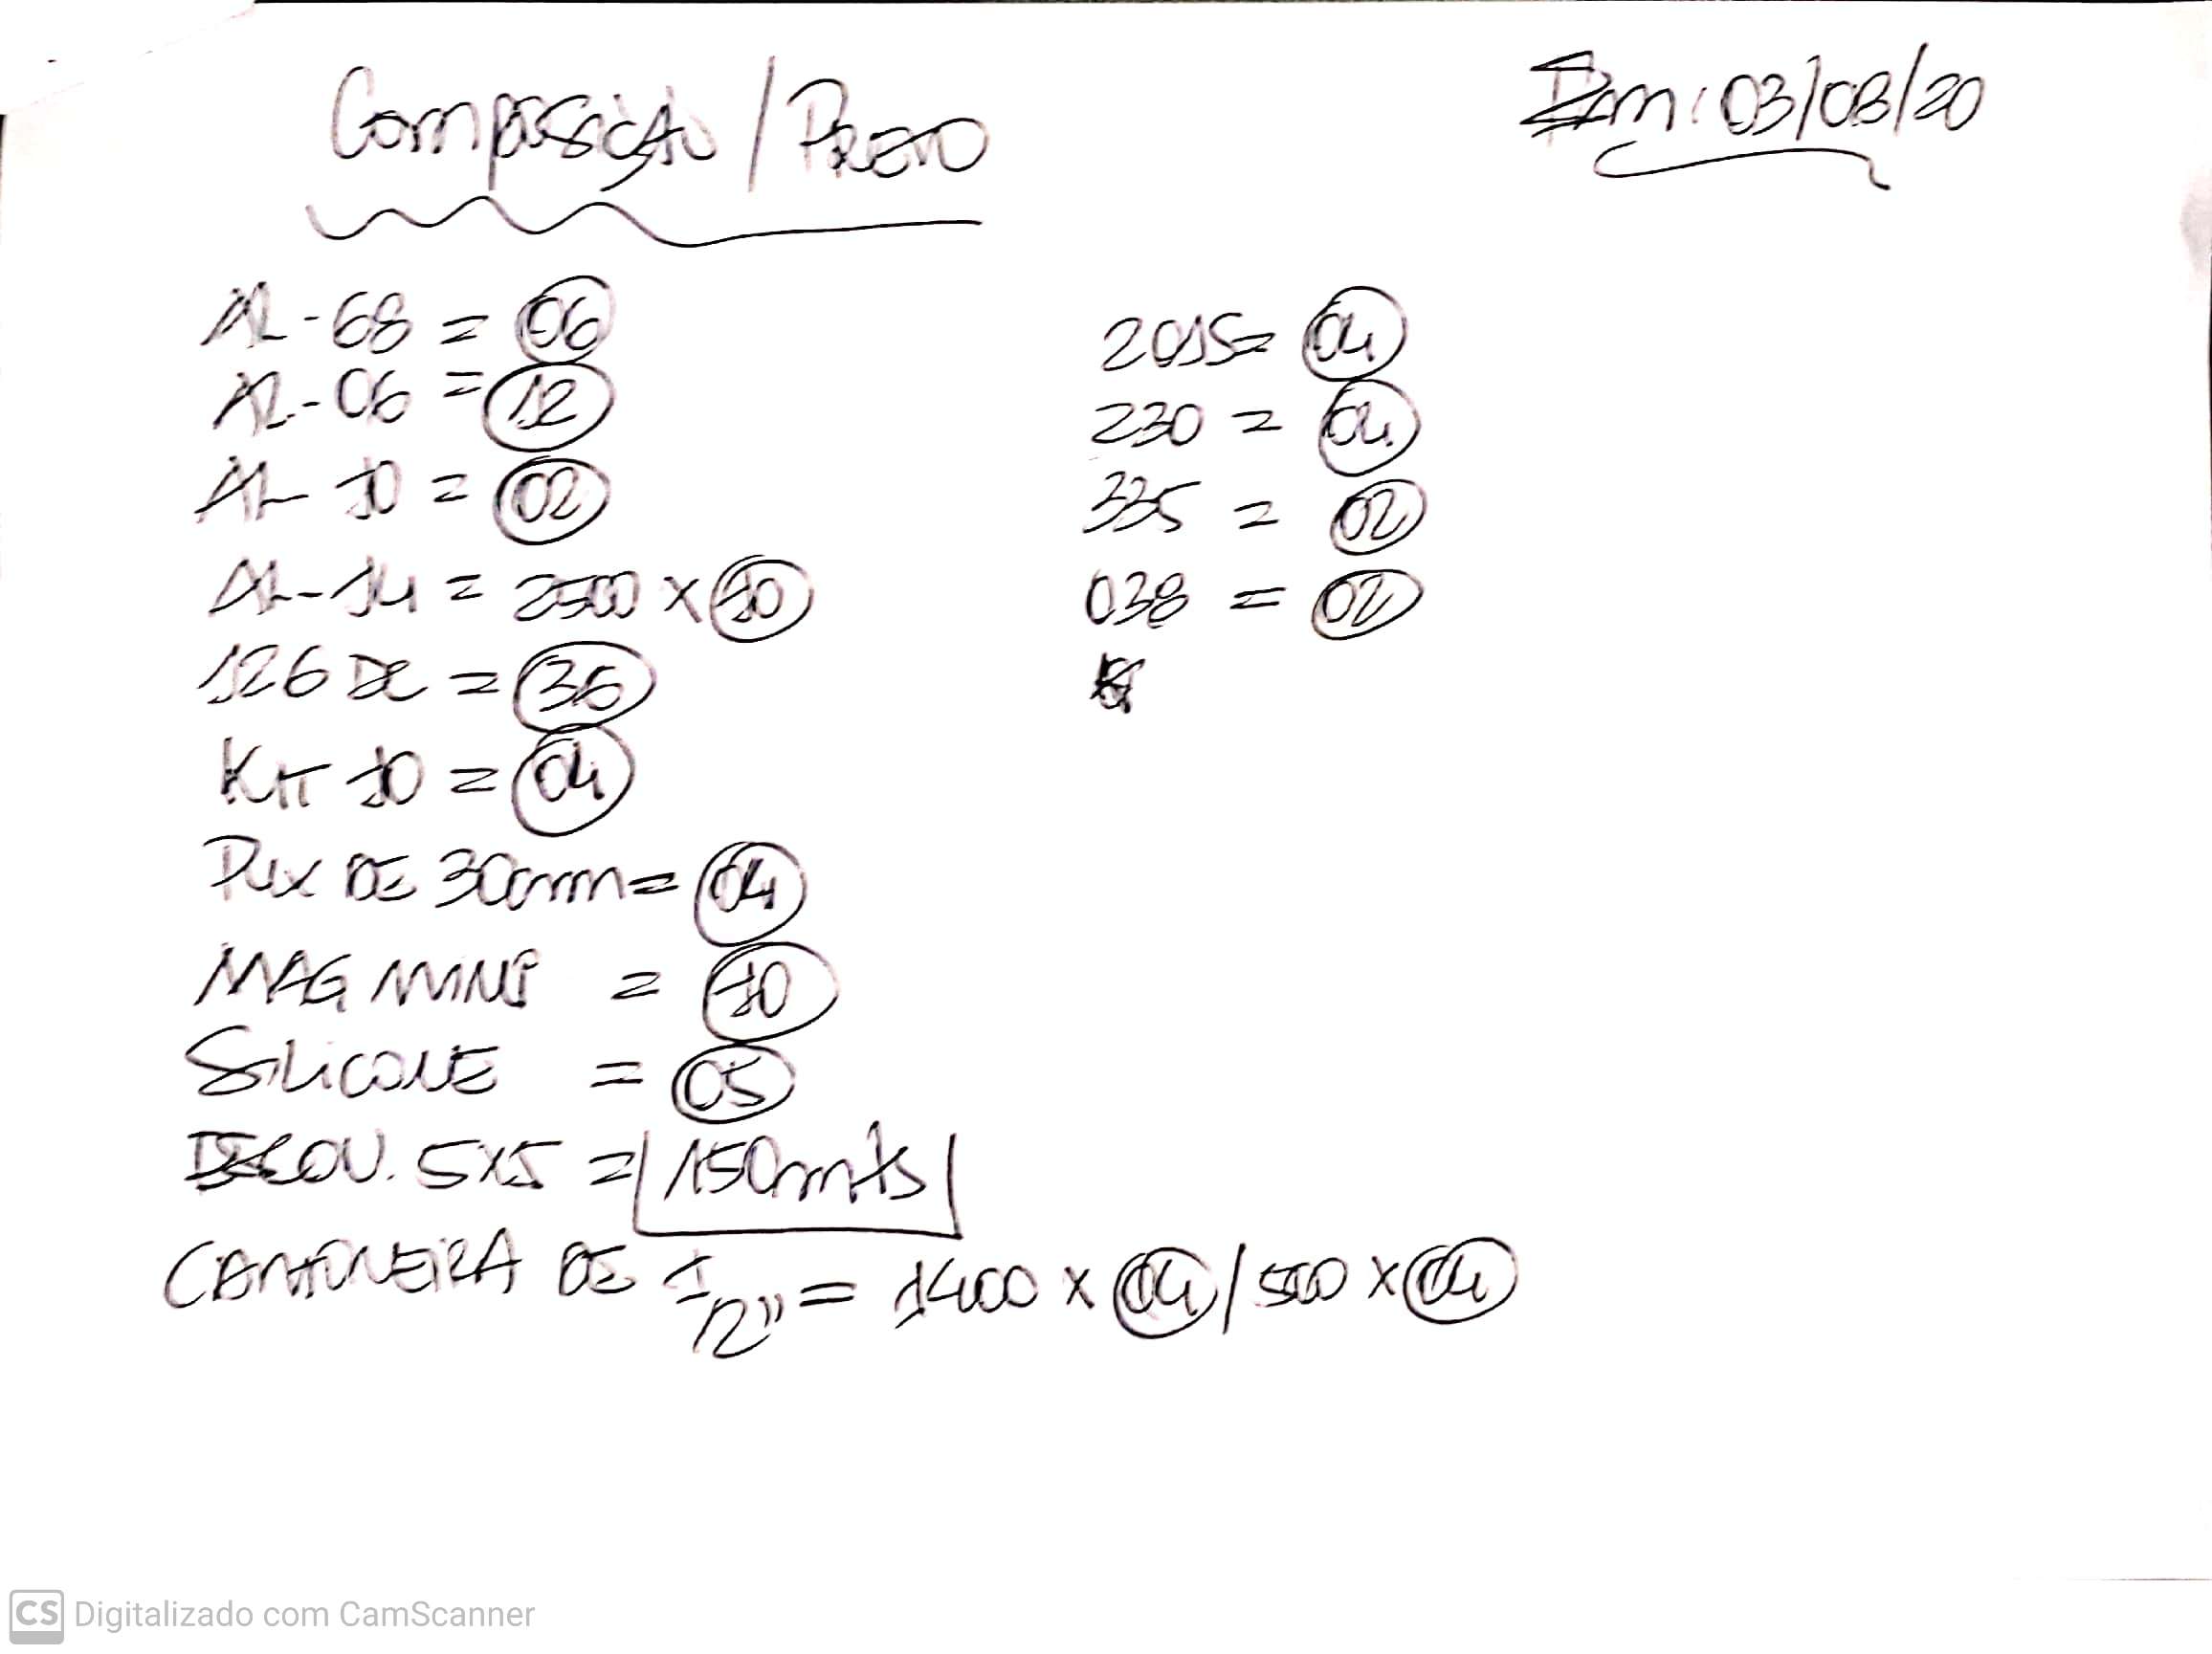 Composição / Preto
Em: 03/08/20
AL-68 = 06
AL-06 = 12
AL 10 = 02
AL-14 = 2500 x 10
126 DC = 36
Kit 10 = 04
Pux DE 30mm = 04
MAG MINI = 10
SiLiCONE = 05
ESCOV. 5x5 = 150mts
CANTONEIRA DE 1/2" = 1400 x 04 / 500 x 04
2015 = 04
230 = 04
335 = 02
038 = 02
CS Digitalizado com CamScanner